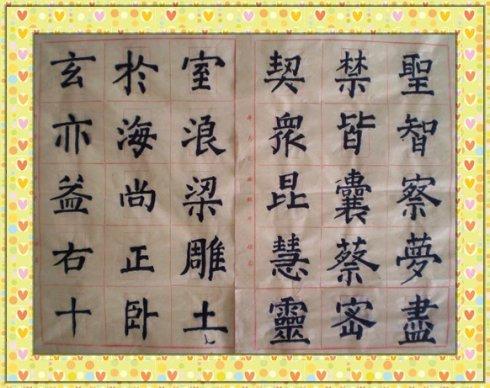 聖智察夢盡
禁皆囊蔡密
契眾昆慧靈
室浪梁雕土
於海尚正卧
玄亦益右十